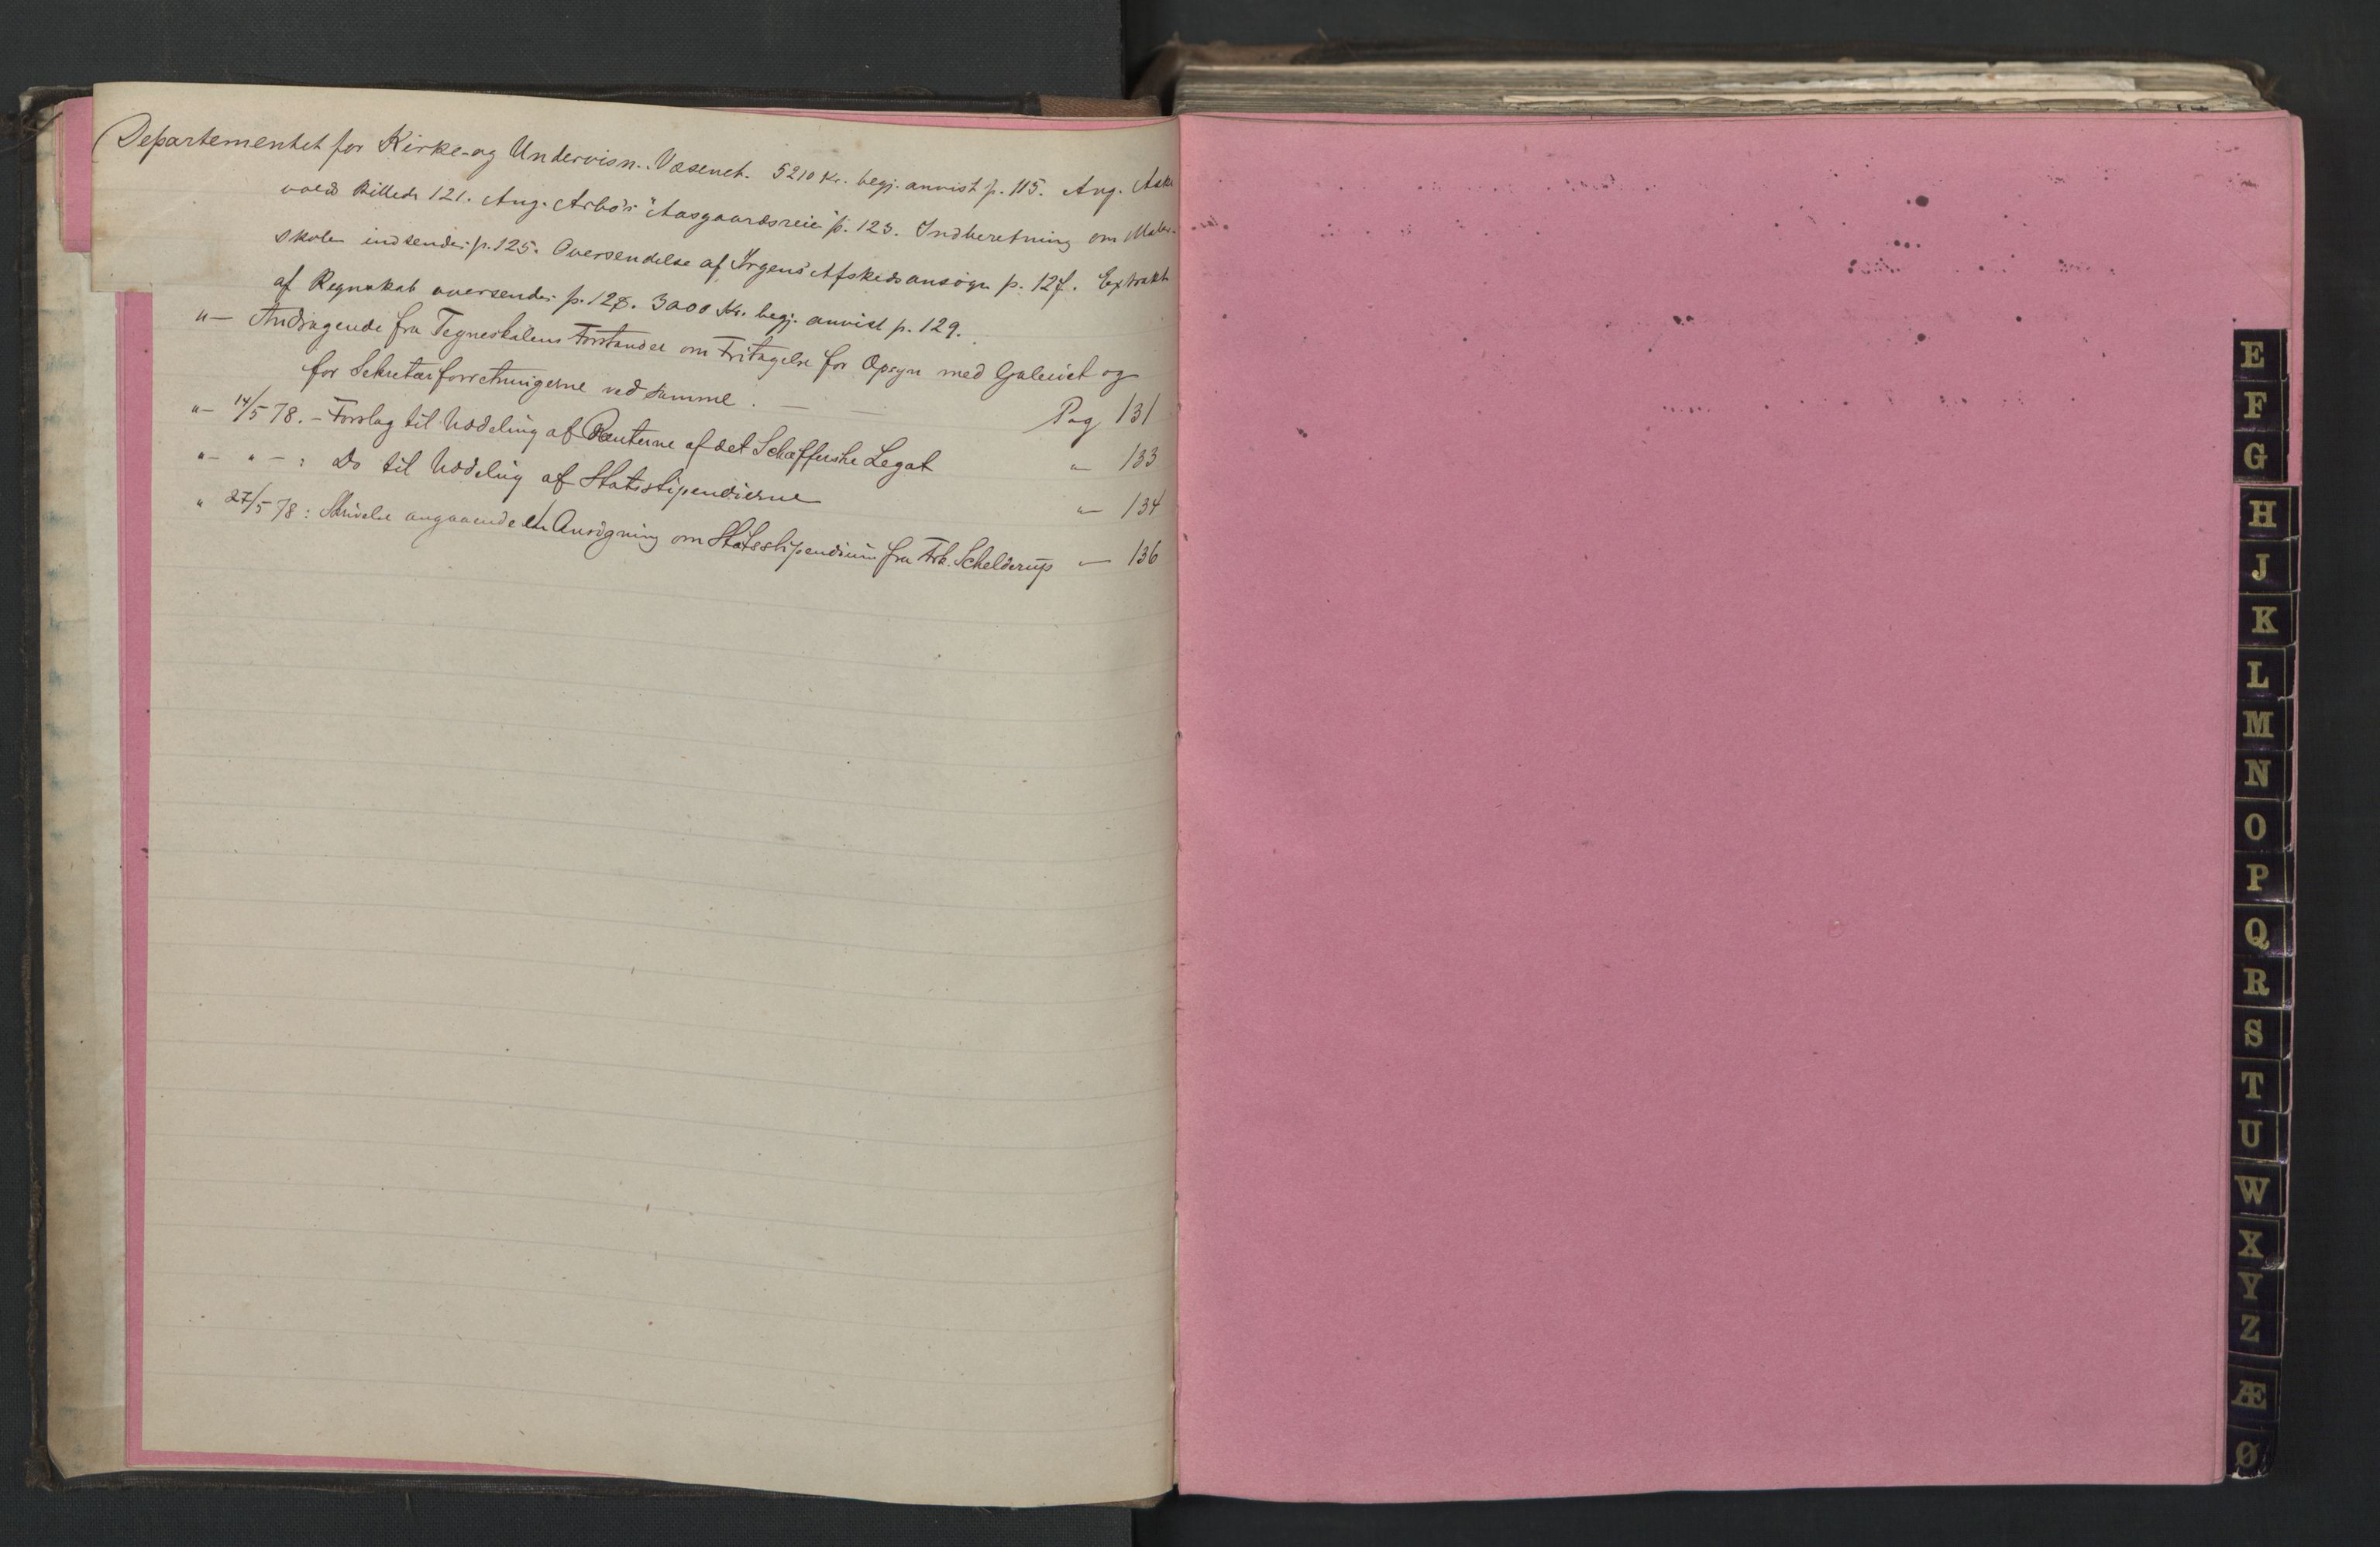 Departementet for Kirke- og Undervisn.. Væsenet. 5210 Kr. begj. anvist p. 115. Ang. Aske
vold Billede 121. Ang. Arbo's "Aasgaardsreie" p. 123. Indberetning om Maler-
skolen indsendes p. 125. Oversendelse af Irgens' Afskedsansøgn p. 127. Extrakt
af Regnskab oversendes p. 128. 3000 Kr. begj. anvist p. 129.
"— Andragende fra Tegneskolens Forstander om Fritagelse for Opsyn med Galleriet og
for Sekretærforretningerne ved samme. — — Pag 131
"— 14/5 78. – Forslag til Uddeling af Renterne af det Schäfferske Legat "— 133
"— "— : Do til Uddeling af Statsstipendierne "— 134
" 27/5 78: Skrivelse angaaende en Ansøgning om Statsstipendium fra Frk. Schelderup "— 136
E
F
G
H
J
K
L
M
N
O
P
Q
R
S
T
U
W
X
Y
Z
Æ
Ø